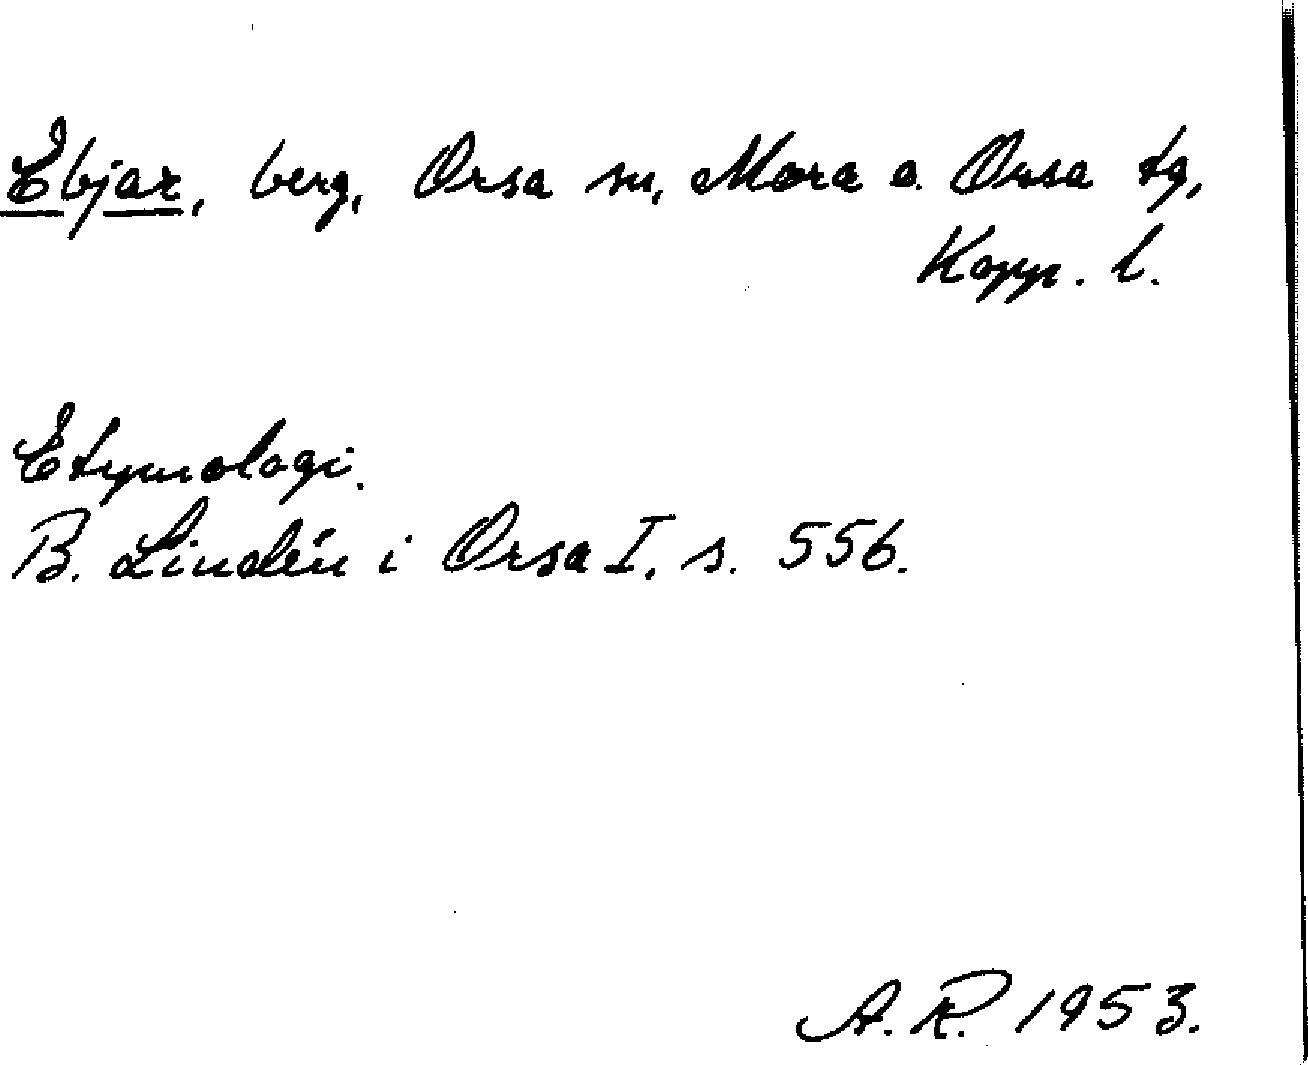 Ebjar, berg, Orsa sn, Mora o. Orsa tg,
Kopp. l.
Etymologi.
B. Lindén i Orsa I, s. 556.
A.R. 1953.